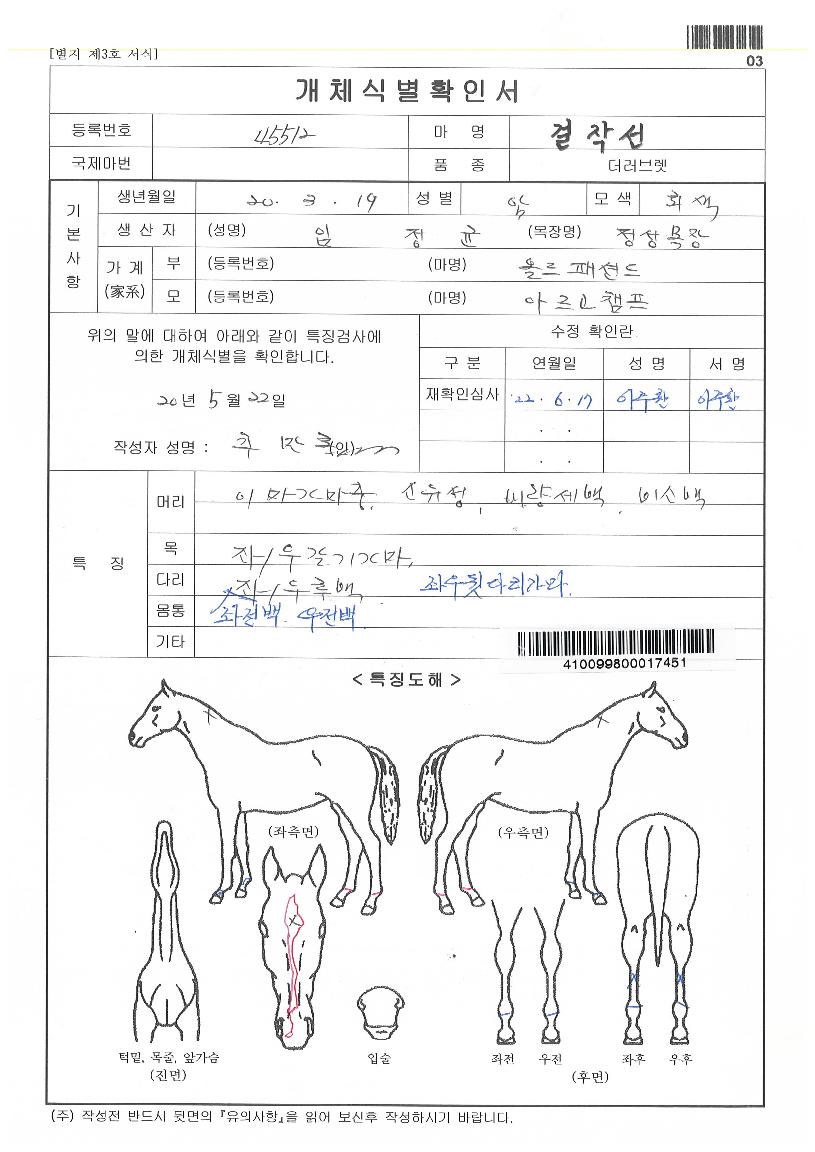 [별지 제3호 서식]
03
개체식별확인서
등록번호 45512 마 명 걸작선
국제마번 품 종 더러브렛
기본사항
생년월일 20. 3. 19 성별 암 모색 회색
생 산 자 (성명) 임 정 균 (목장명) 정상목장
가 계 (家系) 부 (등록번호) (마명) 올드패션드
모 (등록번호) (마명) 아르고캠프
위의 말에 대하여 아래와 같이 특징검사에
의한 개체식별을 확인합니다.
20년 5월 22일
작성자 성명 : (인)
수정 확인란
구 분 연월일 성 명 서 명
재확인심사 22. 6. 17 이주환 이주환
. .
. .
특 징
머리 이마가마중, 유성, 비량세백, 비순백
목 좌/우갈기가마,
다리 좌/우후백 좌우뒷다리가마.
몸통 좌전백. 우전백
기타
410099800017451
< 특징도해 >
(좌측면) (우측면)
턱밑, 목줄, 앞가슴
(진면)
입술
좌전 우전 좌후 우후
(후면)
(주) 작성전 반드시 뒷면의 『유의사항』을 읽어 보신후 작성하시기 바랍니다.